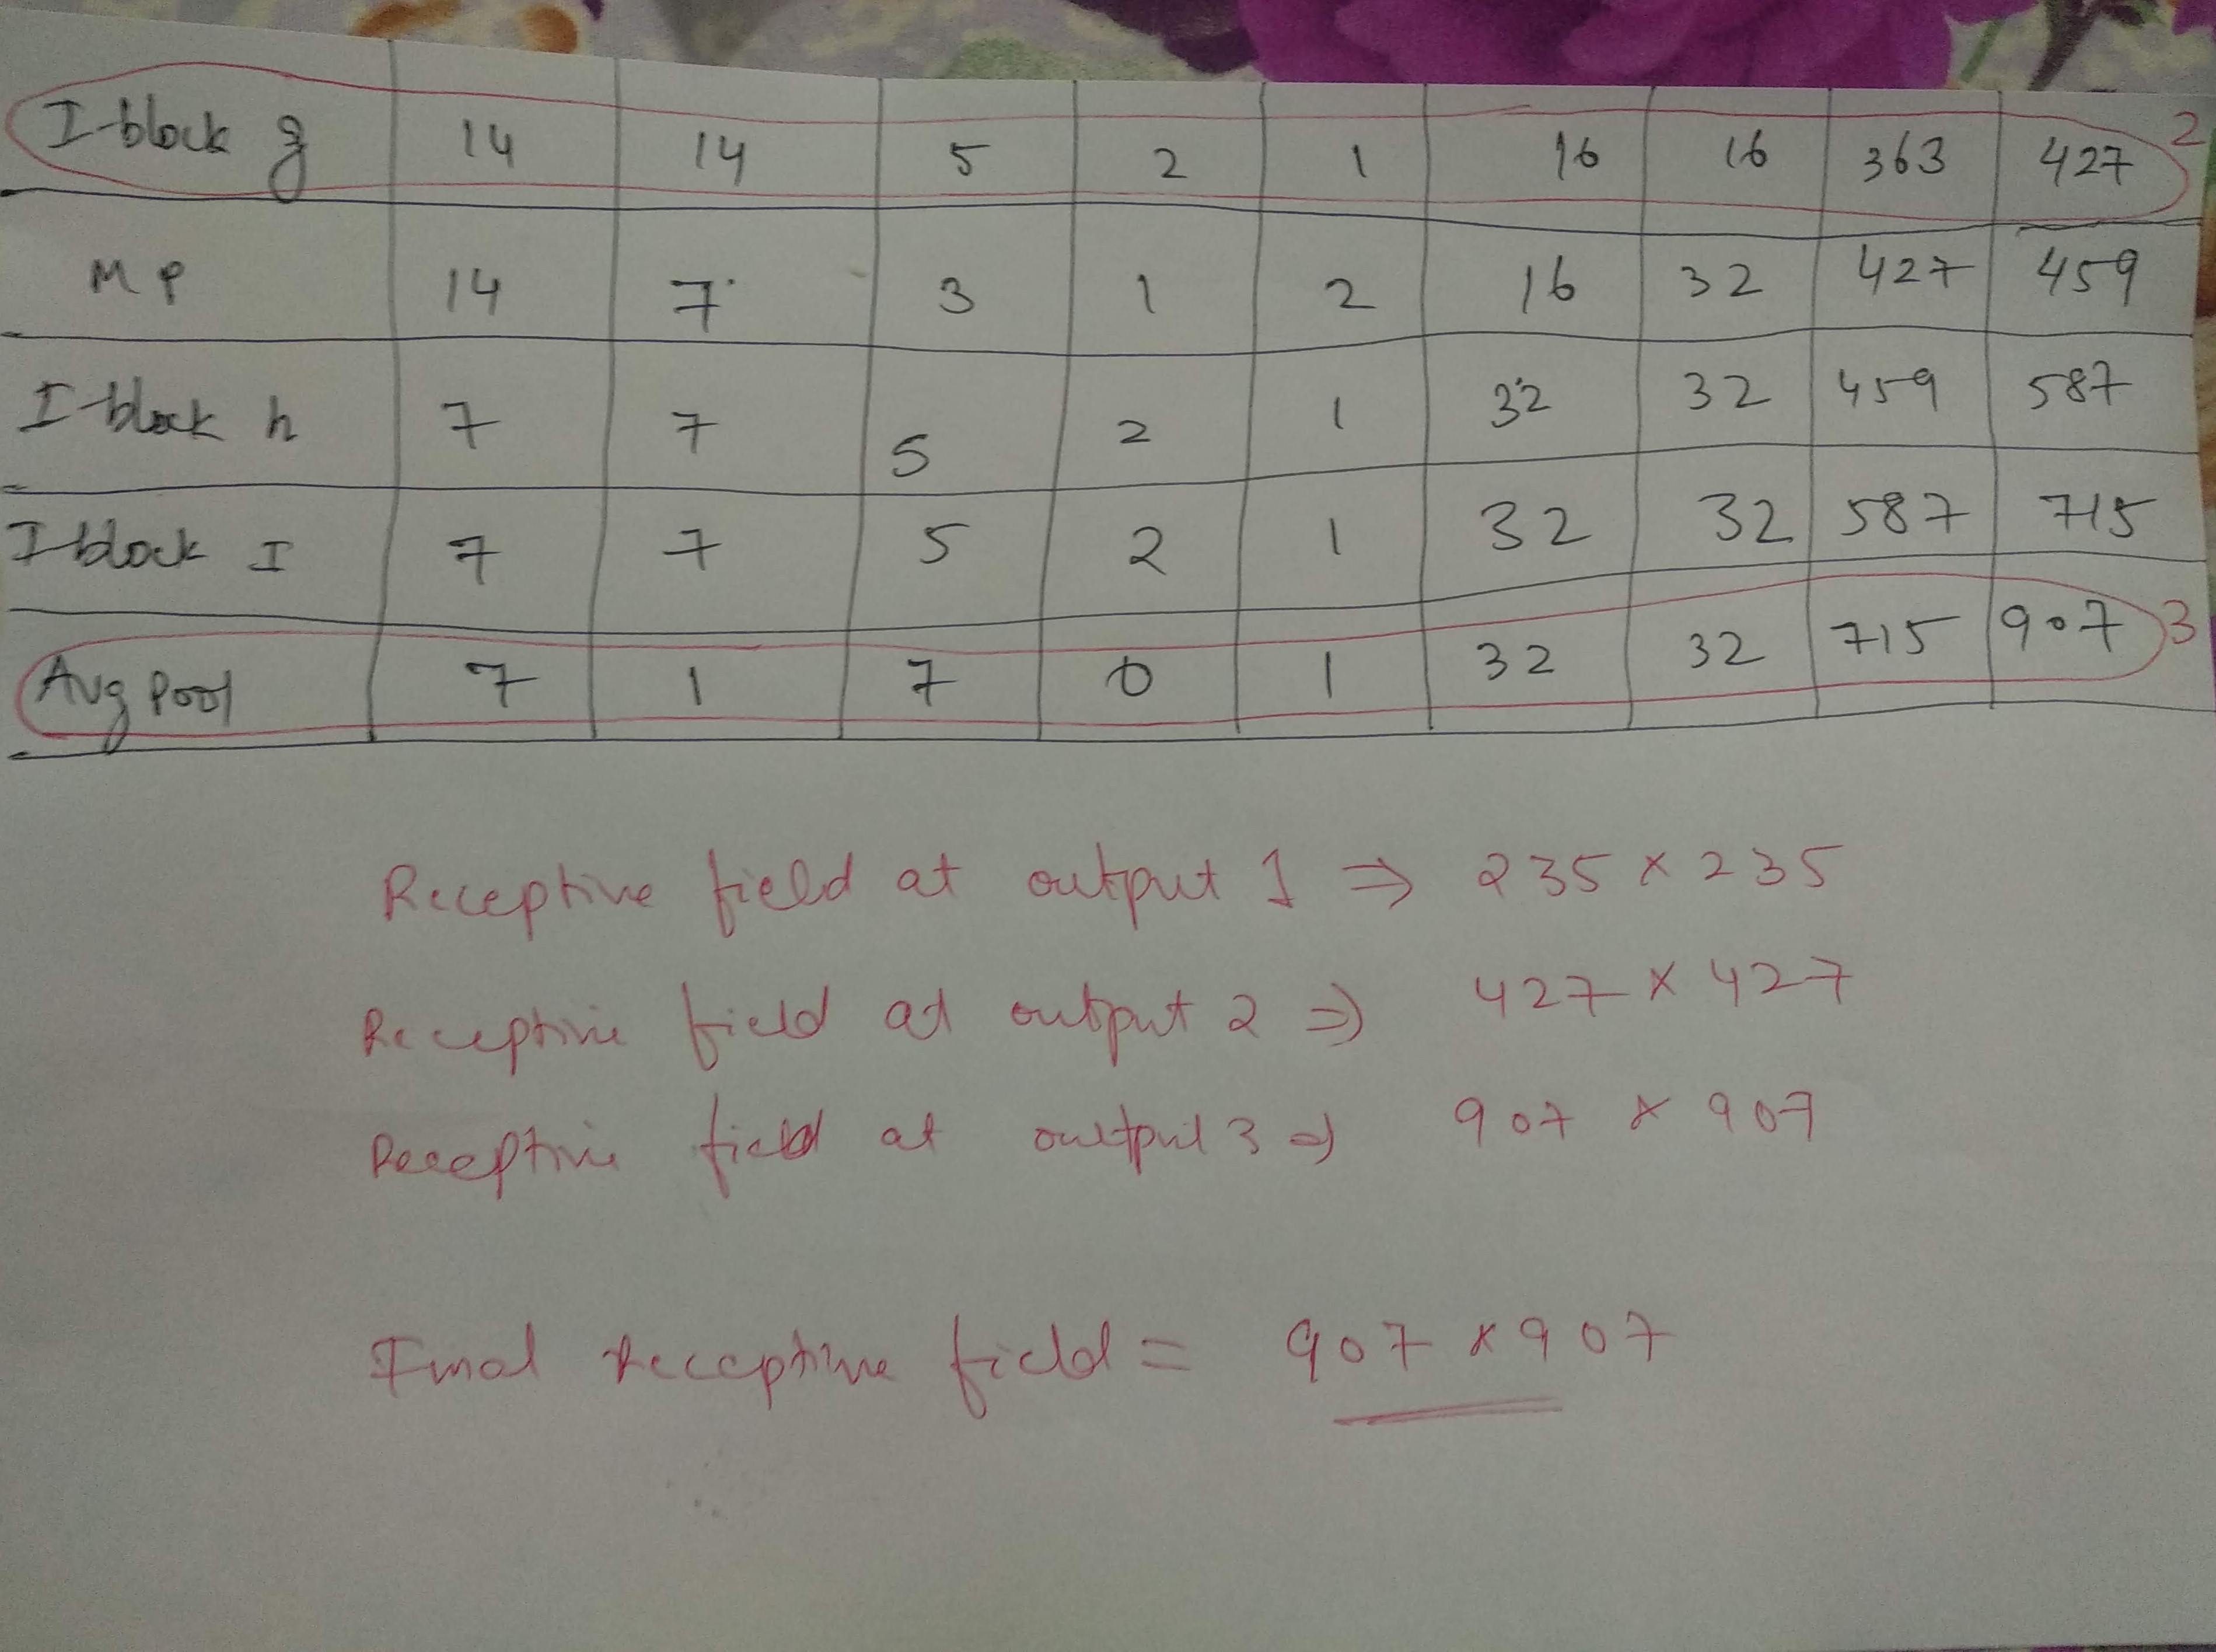 I-block g 14 14 5 2 1 16 16 363 427 2
MP 14 7 3 1 2 16 32 427 459
I-block h 7 7 5 2 1 32 32 459 587
I-block I 7 7 5 2 1 32 32 587 715
Avg Pool 7 1 7 0 1 32 32 715 907 3
Receptive field at output 1 ⇒ 235 x 235
Receptive field at output 2 ⇒ 427 x 427
Receptive field at output 3 ⇒ 907 x 907
Final receptive field = 907 x 907